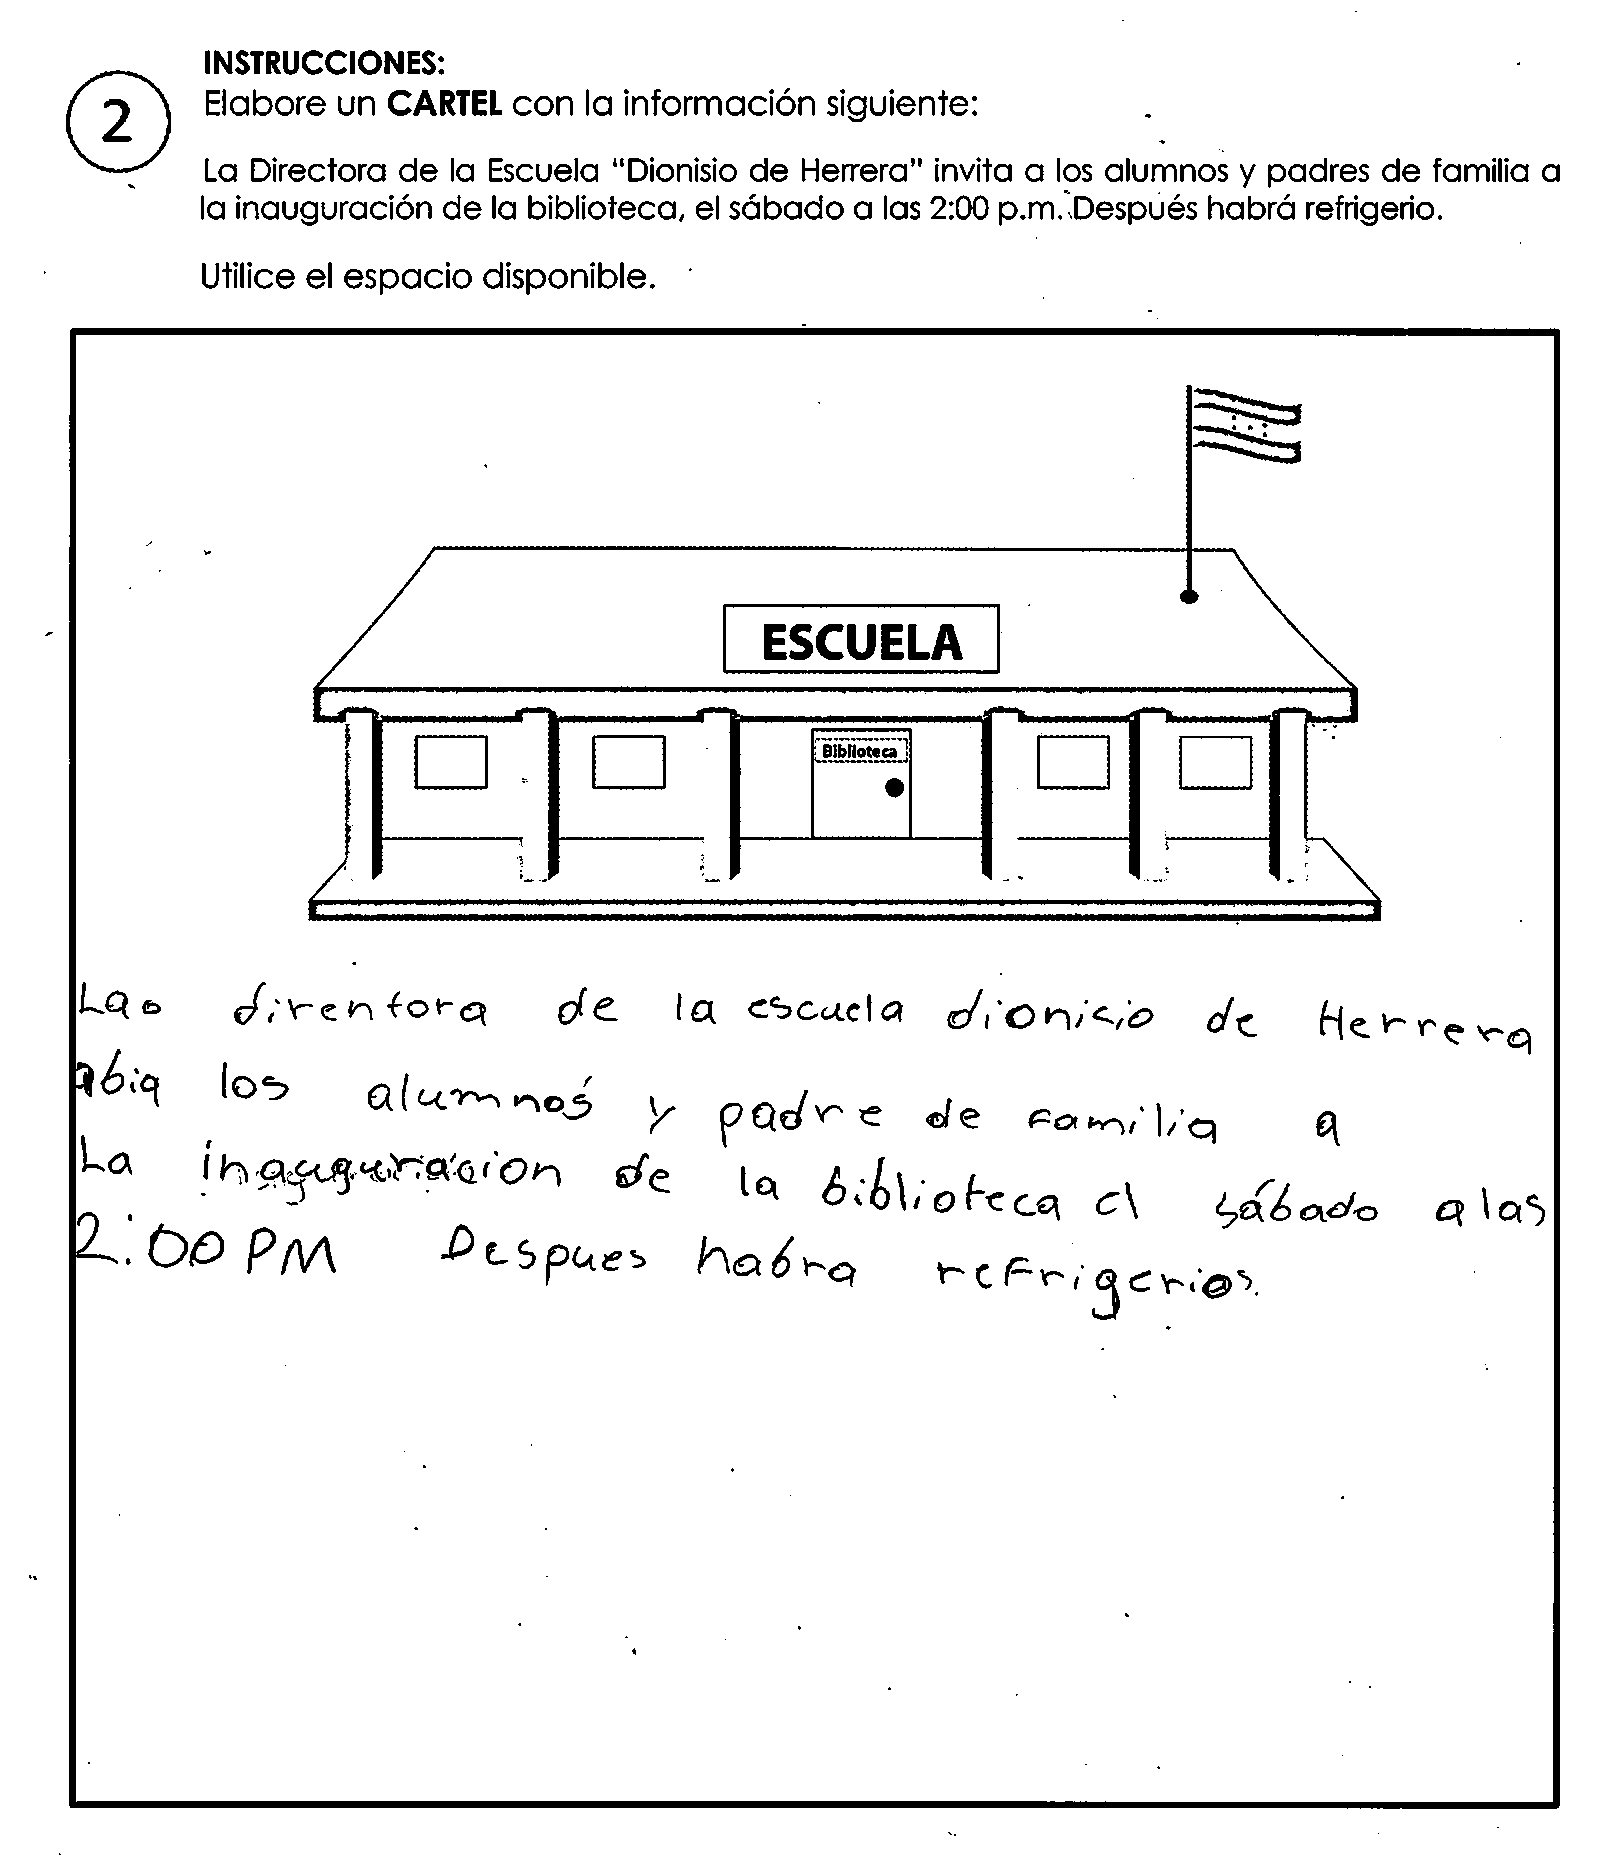 INSTRUCCIONES:
2
Elabore un CARTEL con la información siguiente:
La Directora de la Escuela "Dionisio de Herrera" invita a los alumnos y padres de familia a
la inauguración de la biblioteca, el sábado a las 2:00 p.m. Después habrá refrigerio.
Utilice el espacio disponible.
ESCUELA
Biblioteca
Lao direntora de la escuela dionicio de Herrera
abia los alumnos y padre de familia a
La inauguracion de la biblioteca el sábado a las
2:00 PM Despues habra refrigerios.